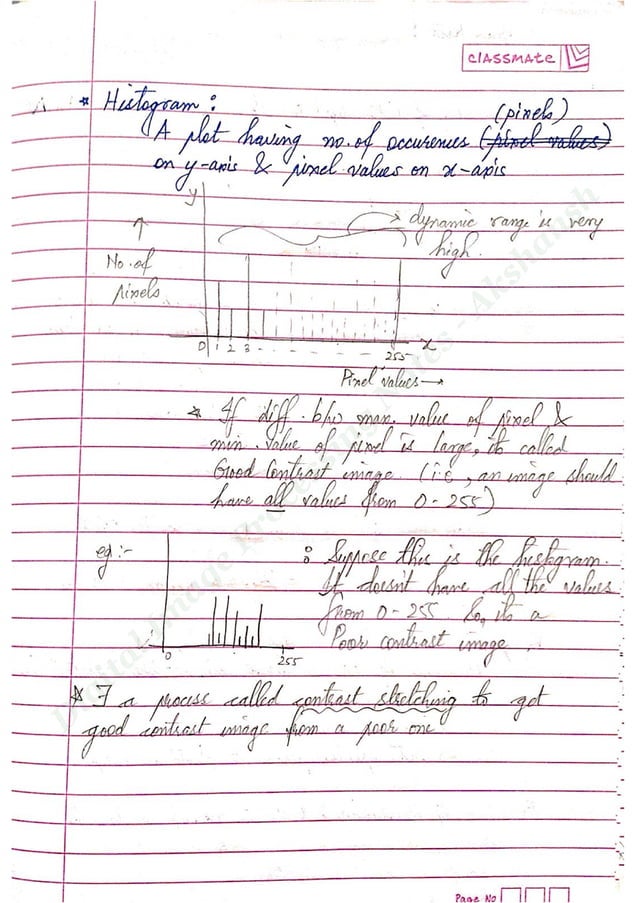 classmate
* Histogram :
(pixels)
A plot having no. of occurences (pixel values)
on y-axis & pixel values on x-axis
y
→ dynamic range is very
high.
↑
No. of
pixels
0 1 2 3 255 x
Pixel values →
* If diff. b/w max. value of pixel &
min. value of pixel is large, its called
Good Contrast image (i.e, an image should
have all values from 0 - 255)
eg :-
: Suppose this is the histogram.
It doesn't have all the values
from 0 - 255. So, its a
Poor contrast image.
0 255
* ∃ a process called contrast stretching to get
good contrast image from a poor one
Digital Image Processing Notes - Akshansh
Page No